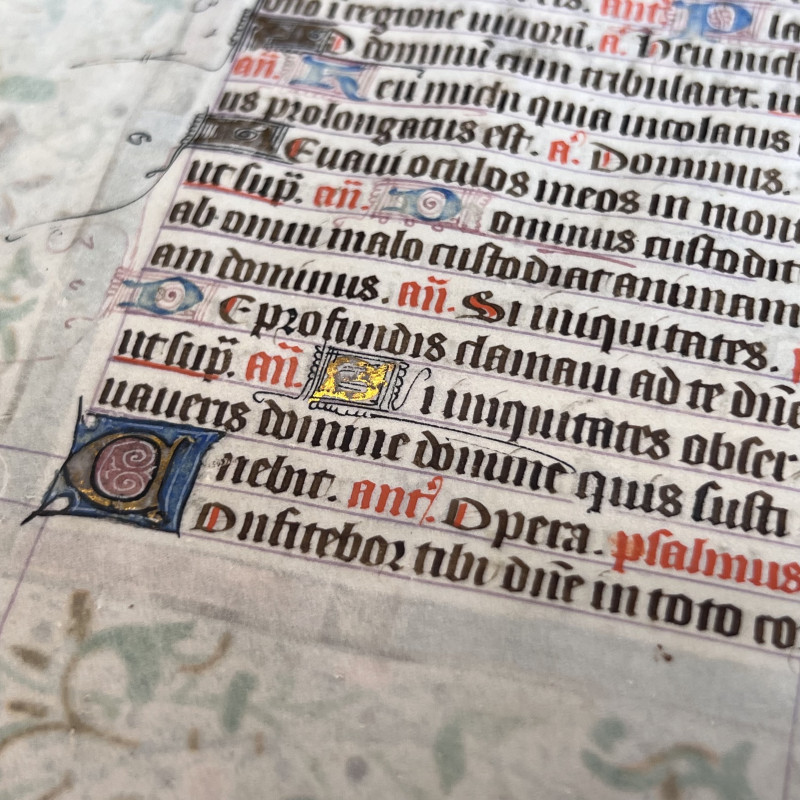 in regione uiuorū. a. Heu michi
D dominū cum tribularer.
añ. H eu michi quia incolatus
us prolongatus est. a. Dominus.
L Euaui oculos meos in mont
ut sup̄. añ. D ominus custodit
ab omni malo custodiat animam
am dominus. añ. Si iniquitates.
D E profundis clamaui ad te dñe
ut sup̄. añ. S i iniquitates obser
uaueris domine domine quis susti
nebit. ant. Opera. psalmus
C Onfitebor tibi dñe in toto co